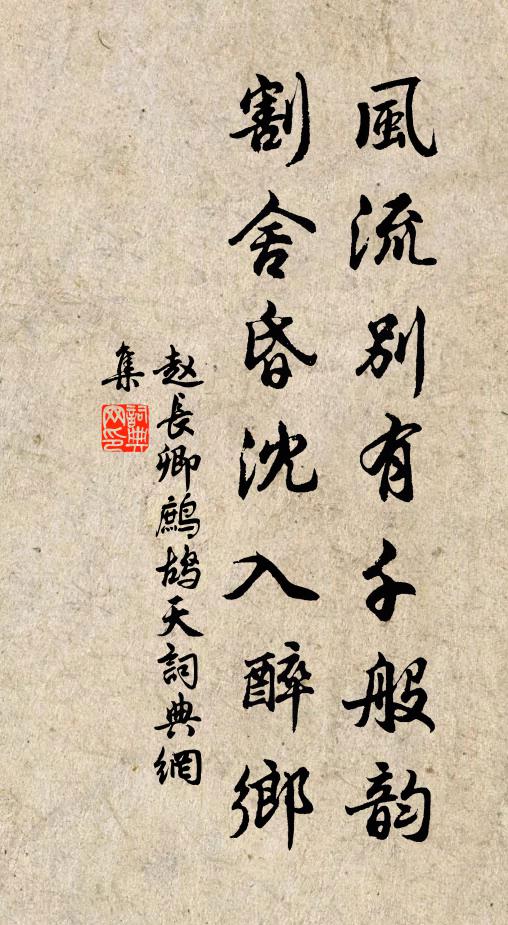 風流別有千般韵
割舍昏沈入醉鄉
赵長卿鷓鴣天詞典網
集
詞典网印